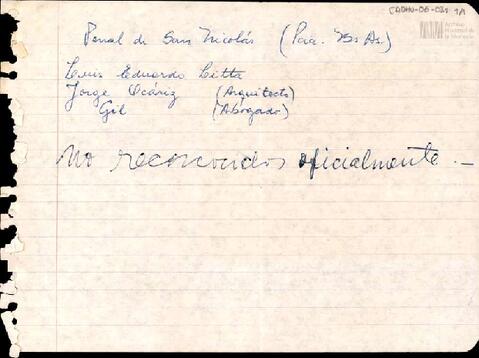 CADHU-D6-D21 1/1
Archivo Nacional de la Memoria
Penal de San Nicolás (Pcia. Bs As.)
Luis Eduardo Citta
Jorge Ocáriz (Arquitecto)
Gil (Abogado)
No reconocidos oficialmente. —